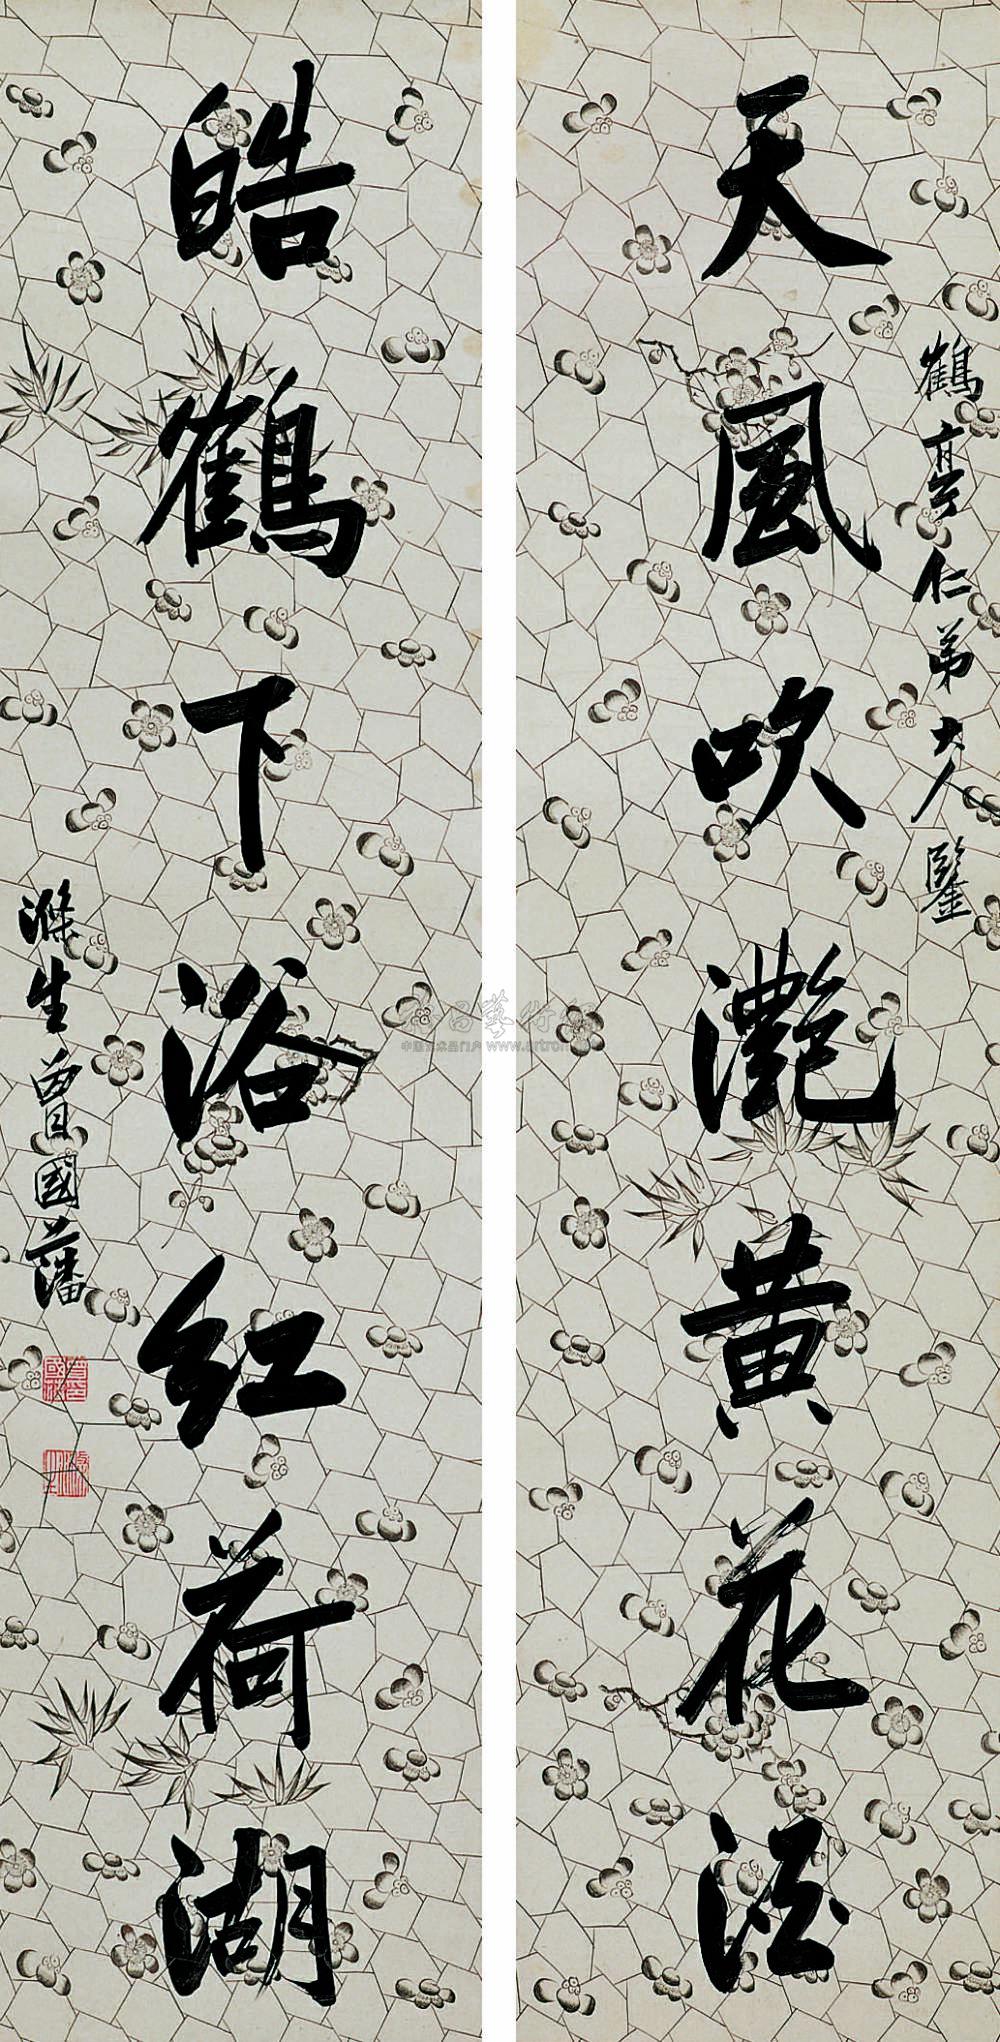 鶴亭仁弟大人鑒
天風吹灔黄花酒
皓鶴下浴红荷湖
滌生曾國藩
www.artron